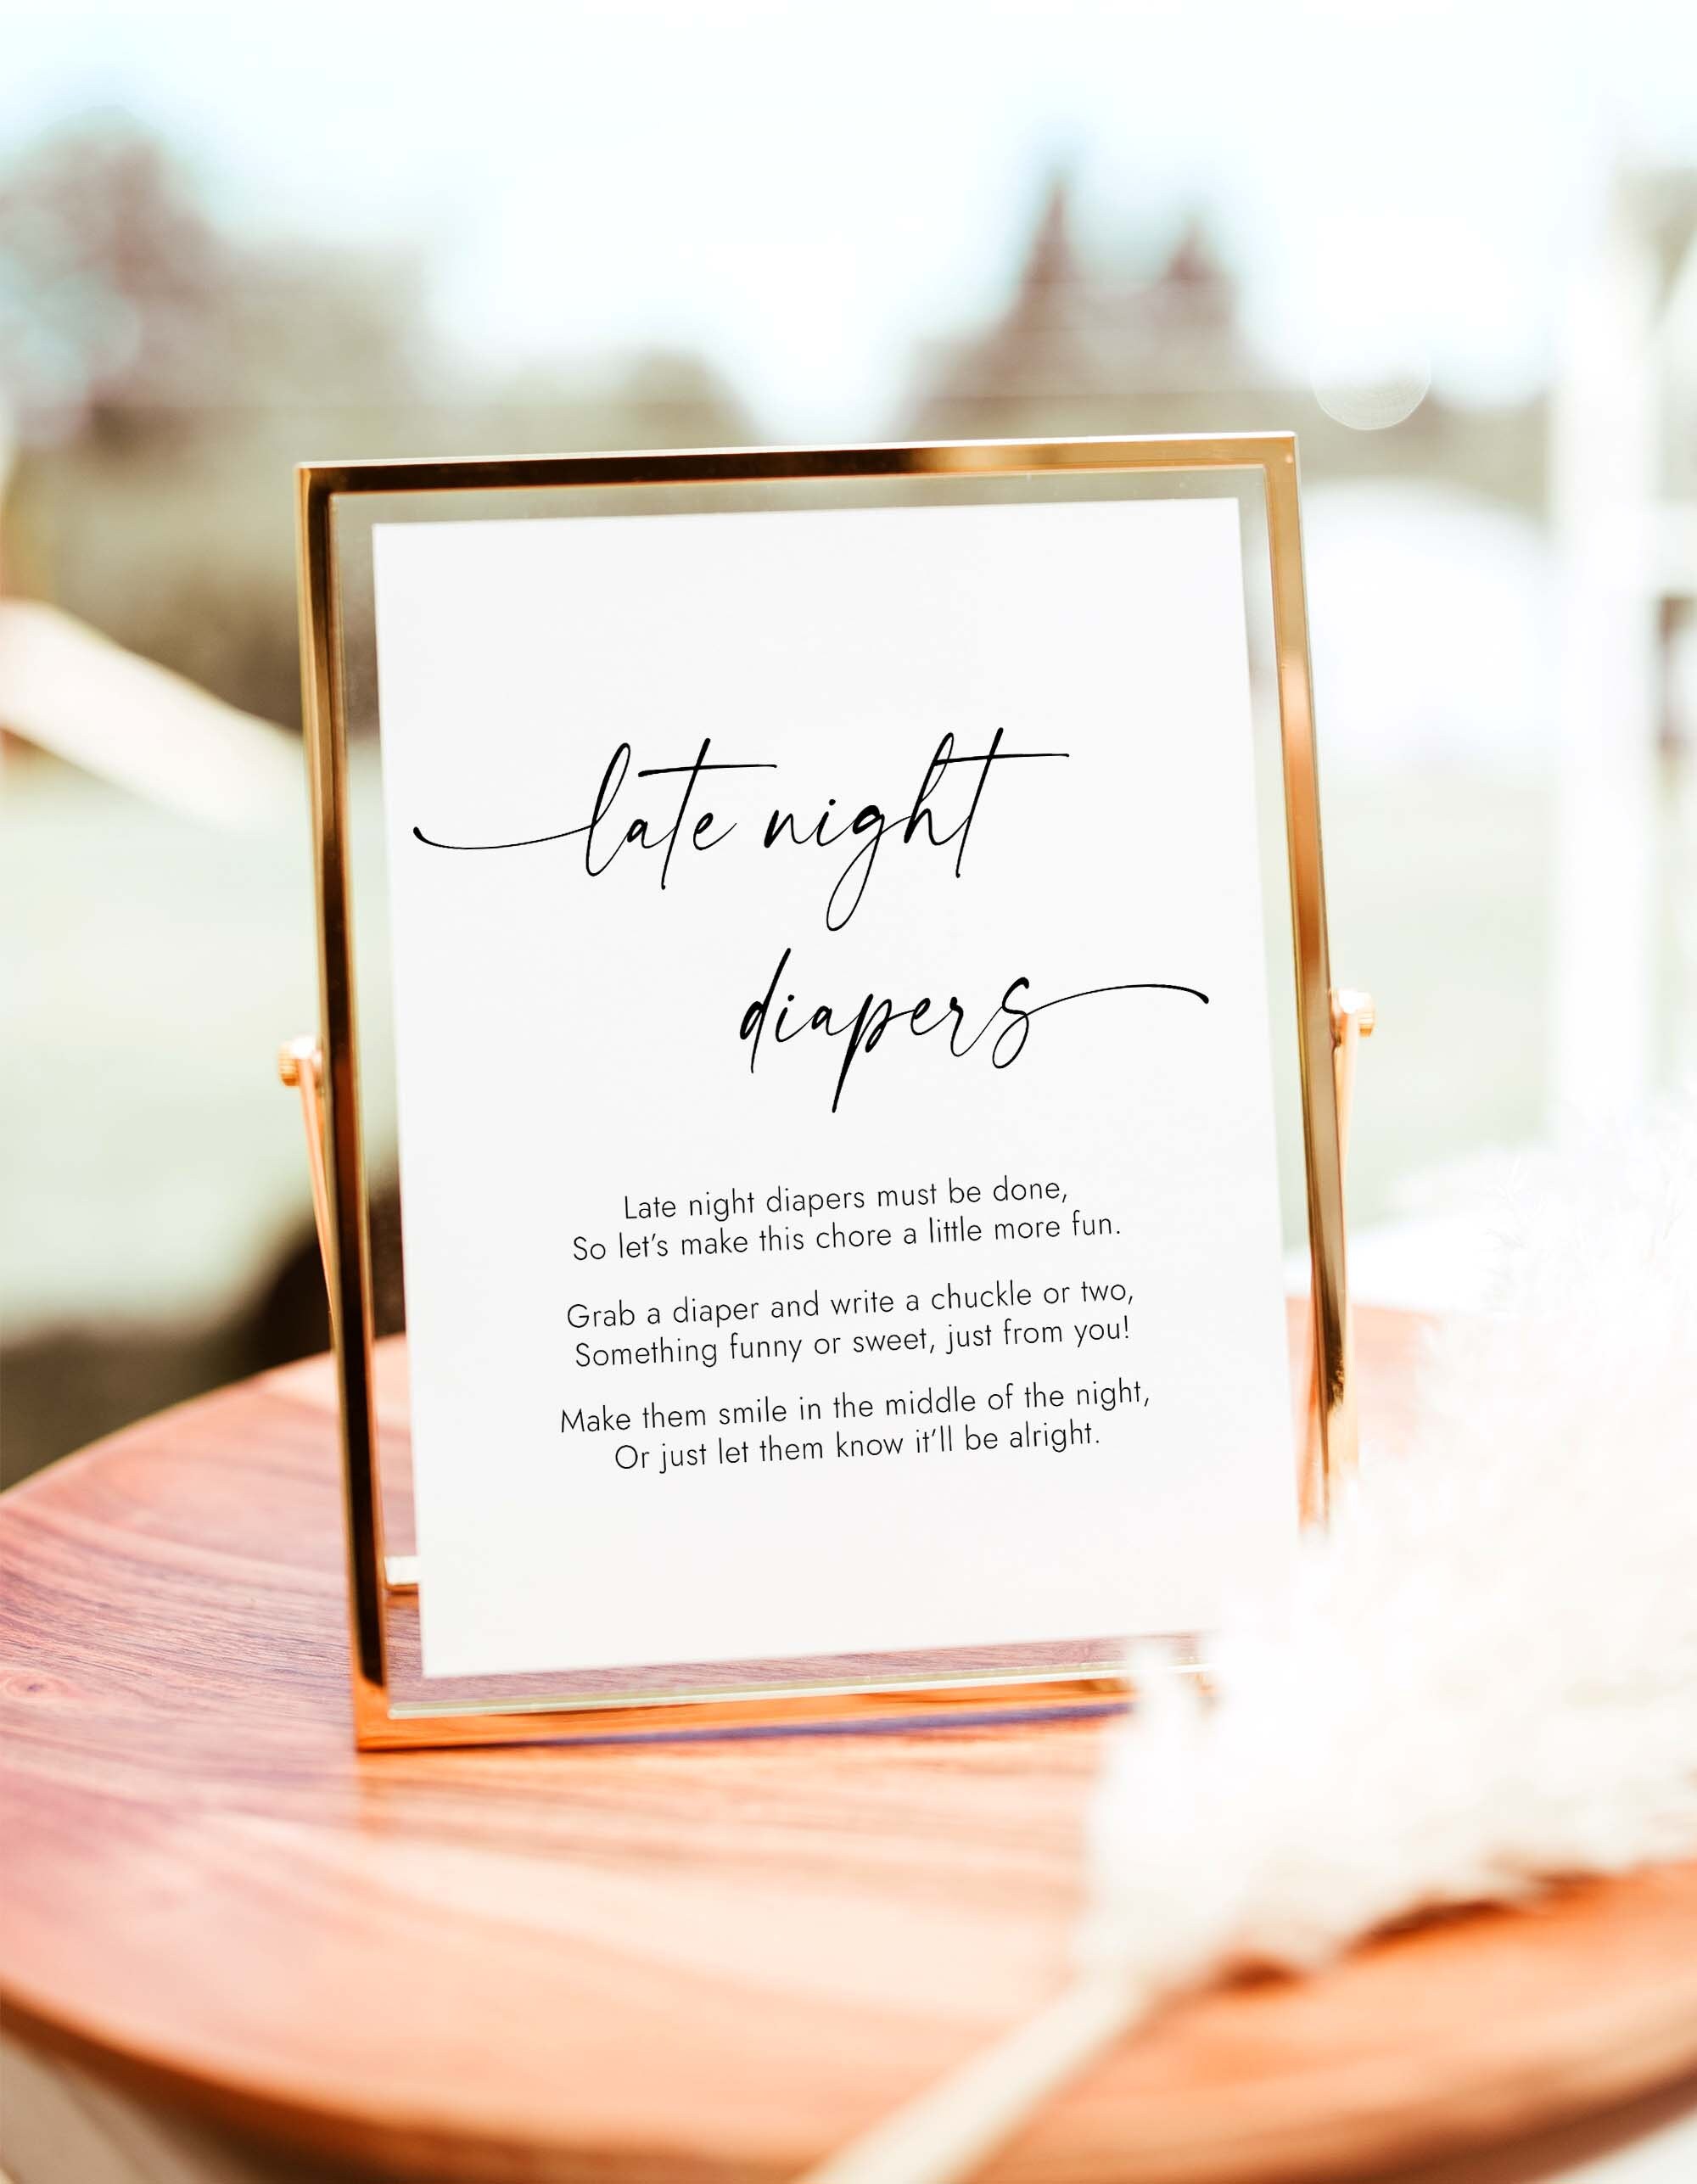 late night
diapers
Late night diapers must be done,
So let's make this chore a little more fun.
Grab a diaper and write a chuckle or two,
Something funny or sweet, just from you!
Make them smile in the middle of the night,
Or just let them know it'll be alright.